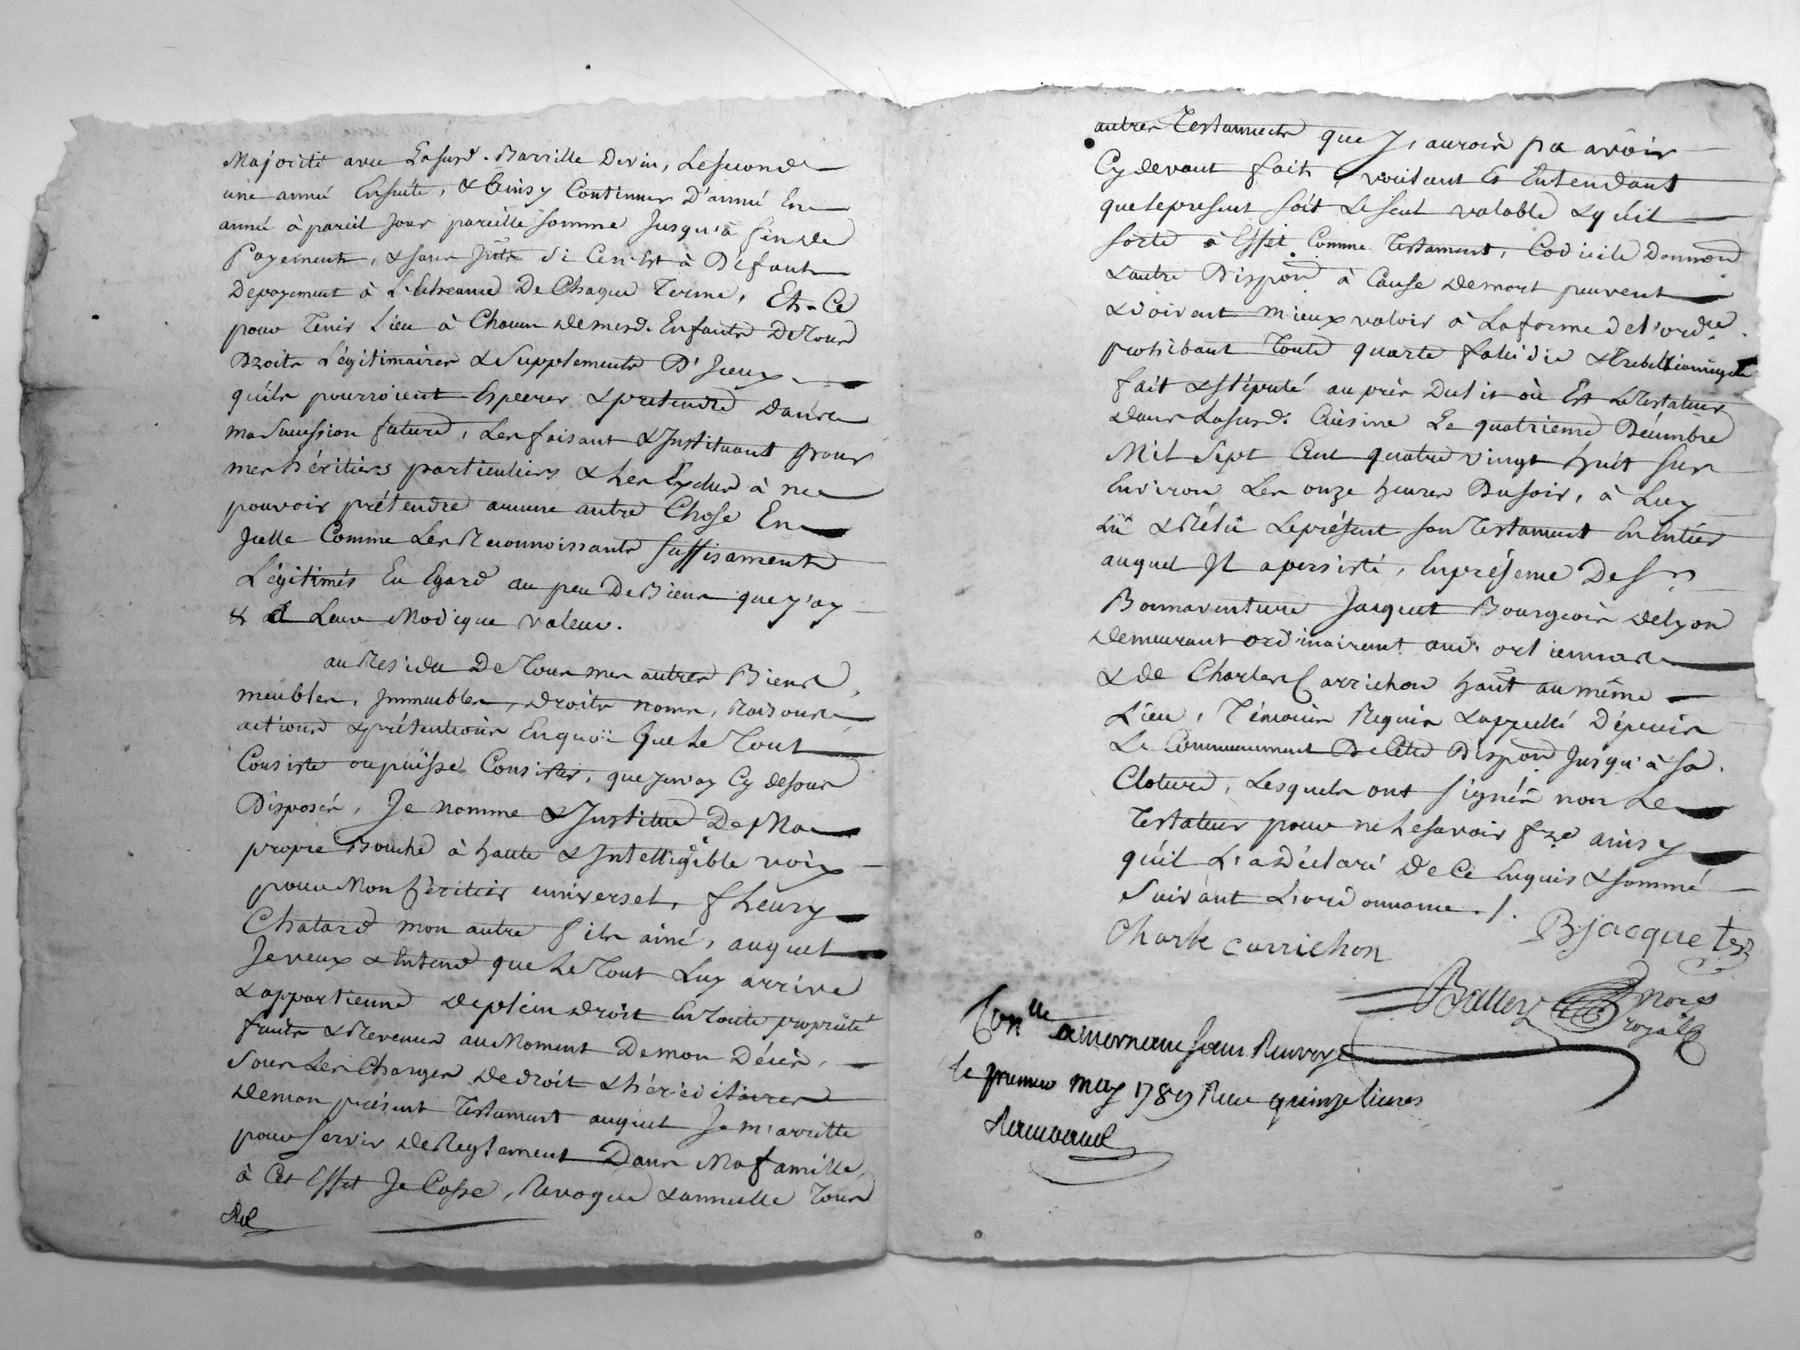 Majorité avec Lasusd. Barrille Devin, Leseconde
une anné Ensuite, & Ainsy Continuer D'anné En
anné à pareil Jour pareille somme Jusqu'à fin de
Payement, & sans Jnts. si Cen'est à Défaut
Depayement à L'Echeance De Chaque Terme, Et Ce
pour Tenir Lieu à Chacun Demesd. Enfants DeTous
Droits Légitimaires & Supplements D'Jceux
quils pourroient Esperer & pretendre dans
ma Succession future, Les faisant & Jnstituant pour
mes héritiers particuliers & Les Exclus à ne
pouvoir prétendre aucune autre Chose En
Jcelle Comme Les Reconnoissants suffisament
Légitimés Eu Egard au peu De Biens que J'ay
& à Leur Modique valeur.
au Residu De Tous mes autres Biens,
meubles, Jmmeubles, droits noms, Raisons
actions & prétentions En quoï que Le Tout
Consiste ou puïsse Consister, que Jen'ay Cy dessus
Disposés, Je nomme & Jnstitue De Ma
propre Bouche à haute & Jntelligible voix
pour Mon héritier universel, fleury
Chatard mon autre fils ainé, auquel
Je veux & Entend que Le Tout Luy arrive
& appartienne de plein droit En Toute proprieté
fruits & Revenus au Moment De mon Décès,
Sous Les Charges de droit & héréditaires
de mon présent Testament auquel Je m'arrette
pour servir de Reglement Dans Ma famille,
à Cet Effet Je Casse, Revoque & annulle Tous
autres Testaments que J'aurois pu avoir
Cy devant faits, voulant Et Entendant
que le present soit Le seul valable & qu'il
sorte à Effet Comme Testament, Codicile Donnaon
& autre Dispon à Cause de mort peuvent
& doivent mieux valoir à La forme del'ordce
prohibant Toute quarte falcidie & Trebellianique
fait & stipulé au près Du lit où Est Le Testateur
dans Lasusd. Cuisine Le quatrieme Décembre
Mil Sept Cent quatre vingt huit sur
Environ Les onze heures Du soir, à Luy
Lû & Rélû Le présent son Testament En Entier
auquel Jl a persisté, En présence De sr
Bonnaventure Jacquet Bourgeois de Lyon
demeurant ordinairement aud.
& de Charles Carrichon haut au même
Lieu, Témoins Requis & appellé Depuis
Le Commencement De Cette Dispon Jusqu'à sa
Cloture, Lesquels ont signés non Le
Testateur pour ne Le savoir fre ainsy
quil L'a Déclaré De Ce Enquis & sommé
Suivant L'ordonnance ./.
Bjacquet
Charle carrichon
Nore
royal
Conlle sans Renvoye
le premier may 1789 Reçu quinze livres